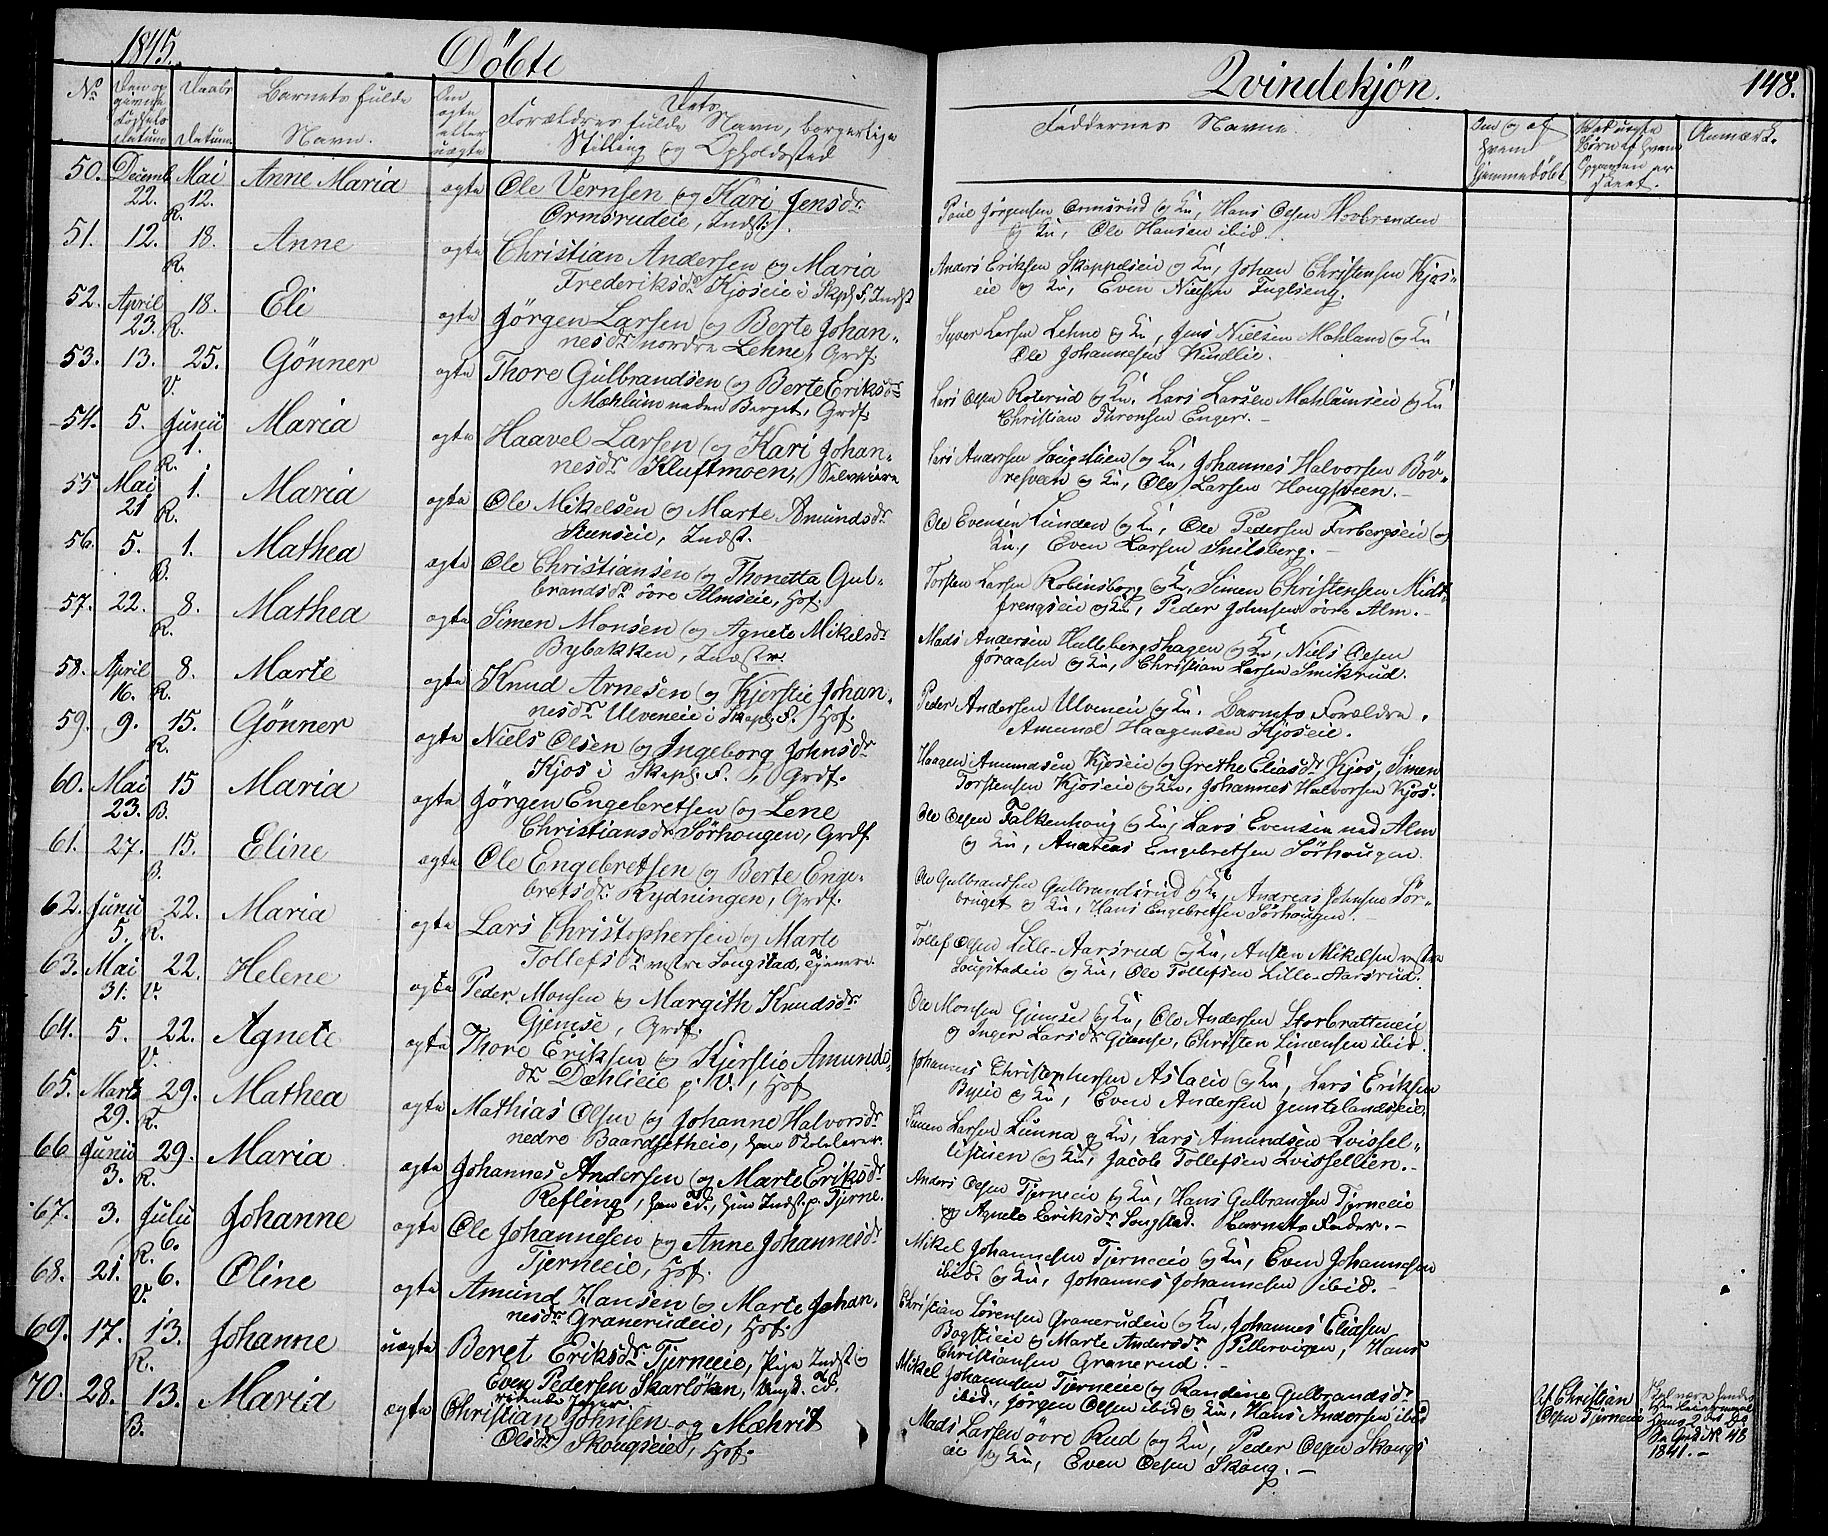 1845. Döbte Qvindekjön. 148.
No Den opgivne Fødsels Datum Daabs Datum Barnets fulde Navn. Om ægte eller uægte Dets Forældres fulde Navn, borgerlige Stilling og Opholdssted Faddernes Navne. Om og af hvem hjemmedöbt Anmærk.
50. Decemb 22. Mai 12. R. Anne Maria ægte Ole Vernsen og Kari Jensdr
Ormsrudeie, Indst.
Poul Jörgensen Ormsrud og Ku, Hans Olsen Hovbrenden
og Ku, Ole Hansen ibid.
51. 12. 18. R. Anne ægte Christian Andersen og Maria
Frederiksdr Kjoseie i Skpl. F, Indst
Anders Eriksen Skappelseie og Ku, Johan Christensen Kjos-
eie og Ku, Even Nielsen Fuglseng.
52. April 23. 18. R. Eli ægte Jörgen Larsen og Berte Johan-
nesdr nordre Lehne, Grdf.
Syver Larsen Lehne og Ku, Jens Nielsen Mæhlum og Ku
Ole Johannesen Kindlie.
53. 13. 25. V. Gönner ægte Thore Gulbrandsen og Berte Eriksdr
Mæhlum neden Berget, Grdf.
Lars Olsen Roterud og Ku, Lars Larsen Mæhlumseie og Ku
Christian Thronsen Enger.-
54. 5. Junii 1. R. Maria ægte Haavel Larsen og Kari Johan-
nesdr Kluftmoen, Selveiere
Lars Andersen og Ku, Johannes Halvorsen Böv-
resveen og Ku, Ole Larsen Hougsveen.-
55 Mai 21 1. R. Maria ægte Ole Mikelsen og Marte Amundsdr
Steenseie, Indst.
Ole Evensen Lunden og Ku, Ole Pedersen Forbergseie og
Ku., Even Larsen Snilsberg.-
56. 5. 1. B. Mathea ægte Ole Christiansen og Thonetta Gul-
brandsdr övre Almseie, Hsf.
Torsten Larsen Robinsborg og Ku, Simen Christensen Midt-
frengseie og Ku, Peder Johnsen övre Alm.-
57. 22. 8. R. Mathea ægte Simen Monsen og Agnete Mikelsdr
Bybakken, Indstr.
Mads Andersen Hullebergshagen og Ku, Niels Olsen
Joraasen og Ku, Christian Larsen Smiksrud.
58. April 16. 8. R. Marte ægte Knud Arnesen og Kjerstie Johan-
nesdr Ulveneie i Skapl. F. Hsf.
Peder Andersen Ulveneie og Ku. Barnets Forældre.
Amund Haagensen Kjoseie.
59. 9. 15. R. Gönner ægte Niels Olsen og Ingeborg Johnsdr
Kjos i Skapl. F., Grdf.
Haagen Amundsen Kjoseie og Grethe Eliasdr Kjos, Simen
Torstensen Kjoseie og Ku, Johannes Halvorsen Kjos.
60. Mai 23. 15 B. Maria ægte Jörgen Engebretsen og Lene
Christiansdr Sörhougen, Grdf.
Ole Olsen Falkenhoug og Ku, Lars Evensen ned Alm
og Ku, Andreas Engebretsen Sörhougen.
61. 27. 15. B. Eline ægte Ole Engebretsen og Berte Enge-
bretsdr Rydningen, Grdf.
Ole Gulbrandsen Gulbrandsrud og Ku, Andreas Johnsen Sör-
bruget og Ku, Hans Engebretsen Sörhougen.
62. Junii 5. 22. R. Maria ægte Lars Christophersen og Marte
Tollefsdr vestre Sougstad, tjenere.
Tollef Olsen Lille-Aarsrud og Ku, Austen Mikelsen vestre
Sougstadeie og Ku, Ole Tollefsen Lille-Aarsrud.
63. Mai 31. 22. V. Helene ægte Peder Monsen og Margith Knudsdr
Gjemse, Grdf.
Ole Monsen Gjemse og Ku, Ole Andersen Storbratteneie
og Inger Larsdr Gjemse, Christen Simensen ibid.
64. 5. 22. V. Agnete ægte Thore Eriksen og Kjerstie Amunds-
dr Dæhlieie p. V., Hsf
Johannes Christophersen Aslaeie og Ku, Lars Eriksen
Byeie og Ku, Even Andersen
65. Marts 29. 29. R. Mathea ægte Mathias Olsen og Johanne Halvorsdr
nedre Baardsetheie, han Skolelærer.
Simen Larsen Lunna og Ku, Lars Amundsen Qvissel-
listuen og Ku, Jacob Tollefsen Qvissellien.-
66 Junii 3. 29. R. Maria ægte Johannes Andersen og Marte Eriksdr
Refling, han ed., hun Indst. p. Tjerne.
Anders Olsen Tjerneeie og Ku, Hans Gulbrandsen Tjerneeie
og Agnete Eriksdr Sougstad. Barnets Fader.-
67. 3. Julii 6. R. Johanne ægte Ole Johannesen og Anne Johannesdr
Tjerneeie, Hsf.
Mikel Johannesen Tjerneeie og Ku, Even Johannesen
ibid. og Ku, Johannes Johannesen ibid.-
68. 21. 6. V. Oline ægte Amund Hansen og Marte Johan-
nesdr Granerudeie, Hsf.
Christian Sörensen Granerudeie og Ku, Johannes Eliasen
Bagstieie og Marte Andersdr Pillervigen, Hans
Christiansen Granerud.-
69. 17. 13. R. Johanne uægte Beret Eriksdr Tjerneeie, Pige Indst og
Even Pedersen Skarlöken, Ungk. ed.
ridende Jæger.
Mikel Johannesen Tjerneeie og Randine Gulbrandsdr
ibid., Jörgen Olsen ibid og Ku, Hans Andersen ibid
Af Christian
Olsen Tjerneeie
1841.-
70. 28. 13. B. Maria ægte Christian Johnsen og Mæhrit
Olsdr Skougseie, Hsf.
Mads Larsen övre Rud og Ku, Peder Olsen Skougs
eie og Ku, Even Olsen Skoug.-